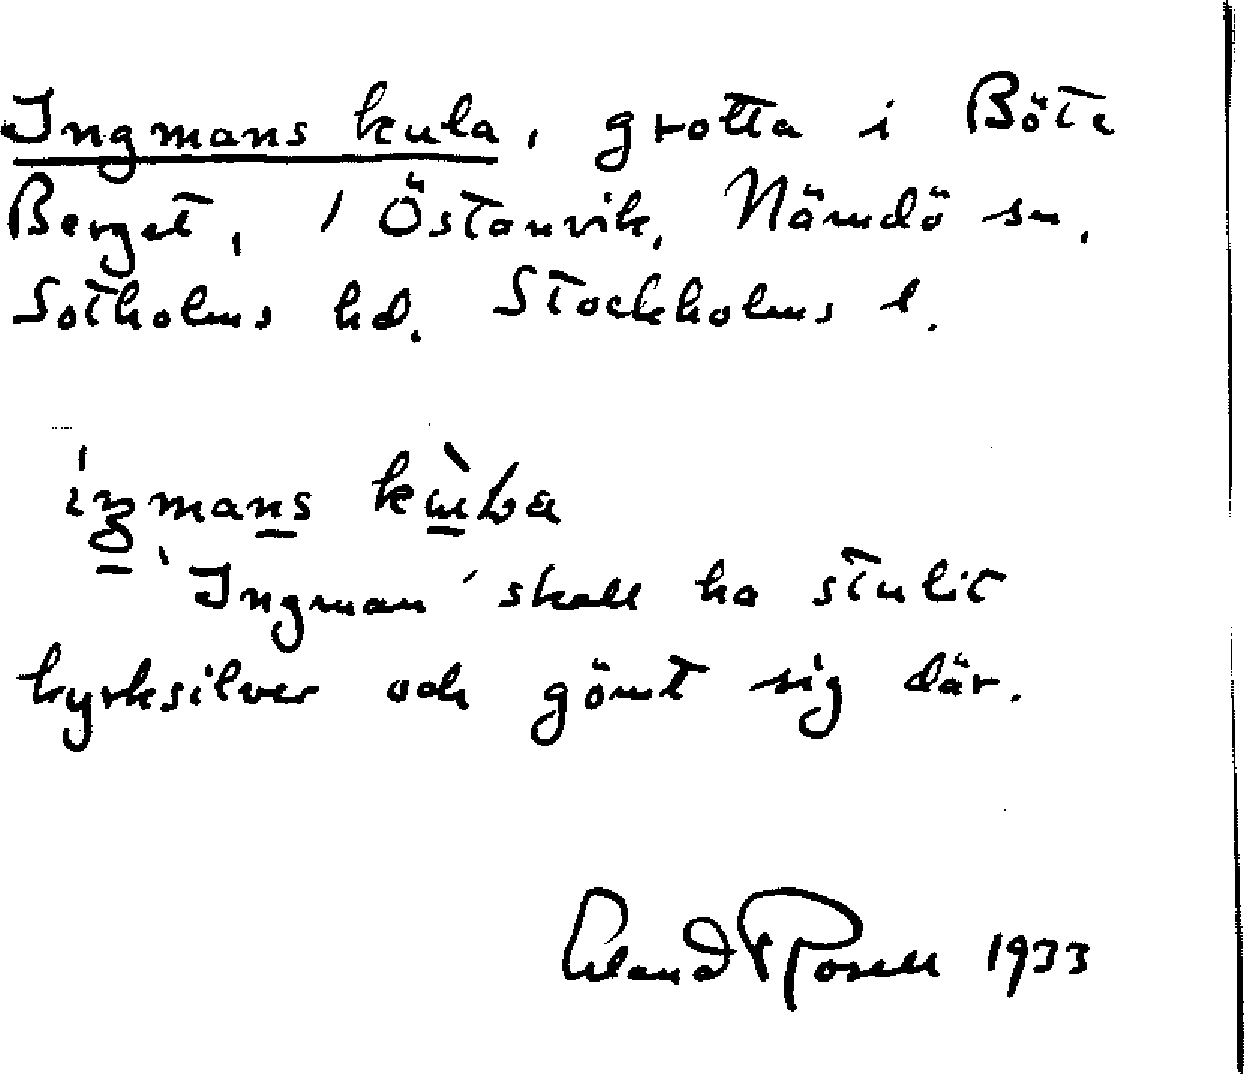 Ingmans kula, grotta i Böte
Berget, 1 Östanvik, Nämdö sn,
Sotholms hd. Stockholms l.
ingmans kuLa
'Ingman' skall ha stulit
kyrksilver och gömt sig där.
Erland Rosell 1933